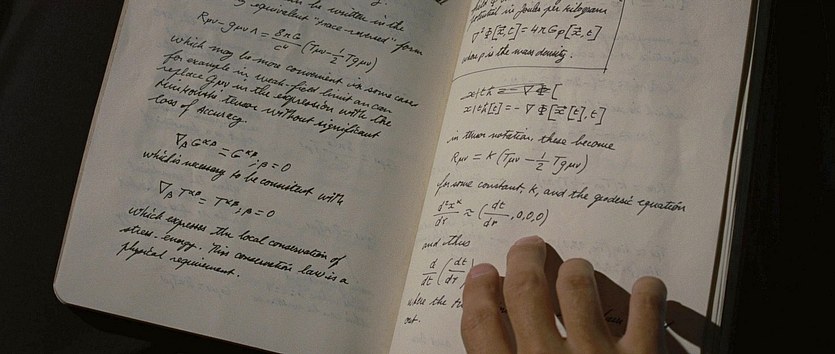 be written in the
equivalent "trace-reversed" form
Rμν - gμν Λ = 8πG/c⁴ (Tμν - 1/2 T gμν)
which may be more convenient in some cases
for example in weak-field limit an can
replace gμν in the expression with the
Minkowski tensor without significant
loss of accuracy.
∇β G^αβ = G^αβ ;β = 0
which is necessary to be consistent with
∇β T^αβ = T^αβ ;β = 0
which expresses the local conservation of
stress-energy. This conservation law is a
physical requirement.
potential in joules per kilogram
∇²Φ[x⃗,t] = 4πGρ[x⃗,t]
where ρ is the mass density.
[t] = -∇Φ[x⃗[t],t]
in tensor notation, these become
Rμν = K (Tμν - 1/2 T gμν)
for some constant, K, and the geodesic equation
≈ (dt/dτ, 0,0,0)
and thus
d/dt (dt/dτ)
where the
out.